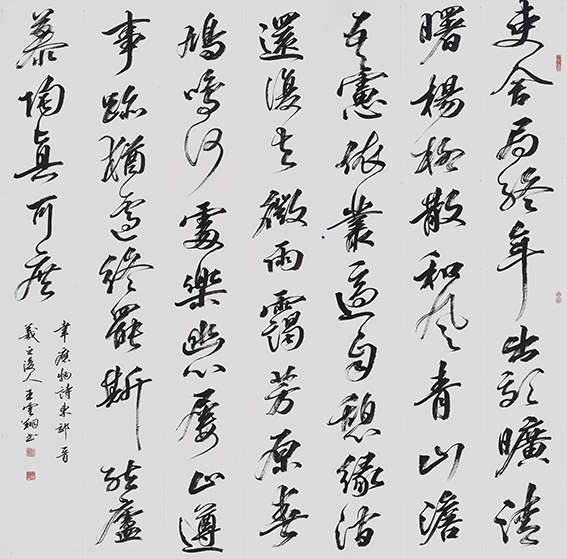 吏舍局終年出郊曠清
曙楊柳散和风青山澹
吾慮依叢適自憩緣澗
還復去微雨靄芳原春
鳩鳴何處樂幽心屢止遵
事跡猶遽終罷斯結廬
慕陶眞可庶
韋應物詩東郊晉
羲之後人王雲翔書